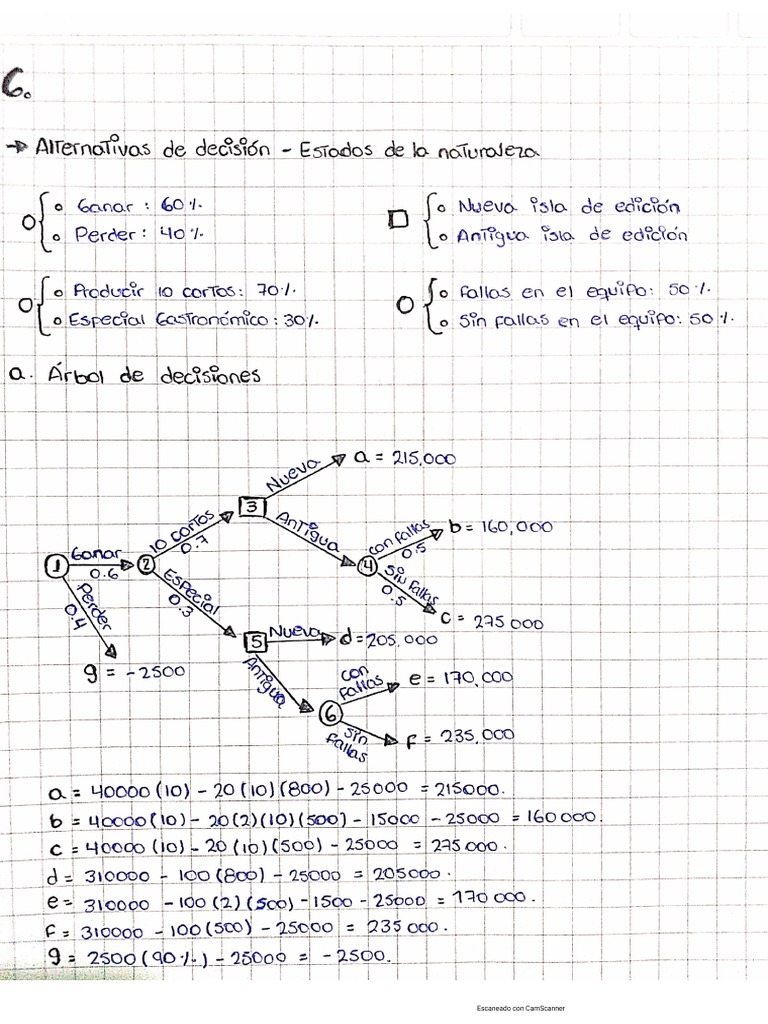 6.
→ Alternativas de decisión - Estados de la naturaleza
o Ganar : 60%.
o Perder : 40%.
□ o Nueva isla de edición
o Antigua isla de edición
o Producir 10 cortos: 70%.
o Especial Gastronómico: 30%.
o Fallas en el equipo: 50%.
o Sin fallas en el equipo: 50%.
a. Árbol de decisiones
Nueva a = 215,000
3
10 cortos 0.7
Antigua
con fallas 0.5 b = 160,000
Ganar 0.6
1
2
4
Sin fallas 0.5 c = 275 000
Perder 0.4
Especial 0.3
5
Nueva d = 205.000
g = -2500
Antigua
con fallas e = 170,000
6
sin fallas f = 235,000
a = 40000 (10) - 20 (10) (800) - 25000 = 215000.
b = 40000 (10) - 20 (2) (10) (500) - 15000 - 25000 = 160 000.
c = 40000 (10) - 20 (10) (500) - 25000 = 275 000.
d = 310000 - 100 (800) - 25000 = 205000.
e = 310000 - 100 (2) (500) - 1500 - 25000 = 170 000.
f = 310000 - 100 (500) - 25000 = 235 000.
g = 2500 (90%.) - 25000 = -2500.
Escaneado con CamScanner